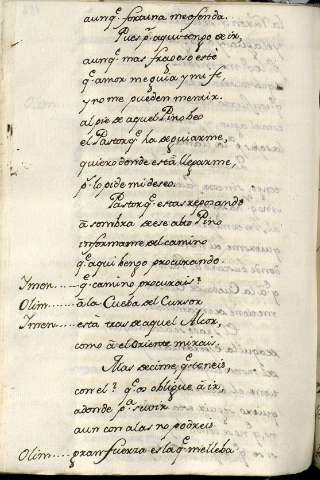 aunq.^e fortuna me ofenda.
Pues p.^r aqui tengo de ir,
aunq.^e mas fragoso esté
q.^e amor me guia, y mi fe,
y no me pueden mentir.
al pie de aquel Pino veo
el Pastor q.^e ha de guiarme,
quiero donde está llegarme,
p.^r lo pide mi deseo.
Pastor q.^e estas reposando
á sombra de ese alto Pino
informame del camino
q.^e aqui bengo procurando.
Imen..... q.^e camino procurais?
Olim..... á la Cueba del Cursor
Imen..... está tras de aquel Alcor,
como á el Oriente mirais.
Mas decime q.^e teneis,
con el? q.^e os obligue á ir,
adonde p.^a subir
aun con alas no podreis
Olim..... gran fuerza es la q.^e me lleba